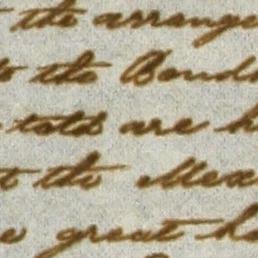 the arrange
to the Bonds
told are h
t the Mex
great ha